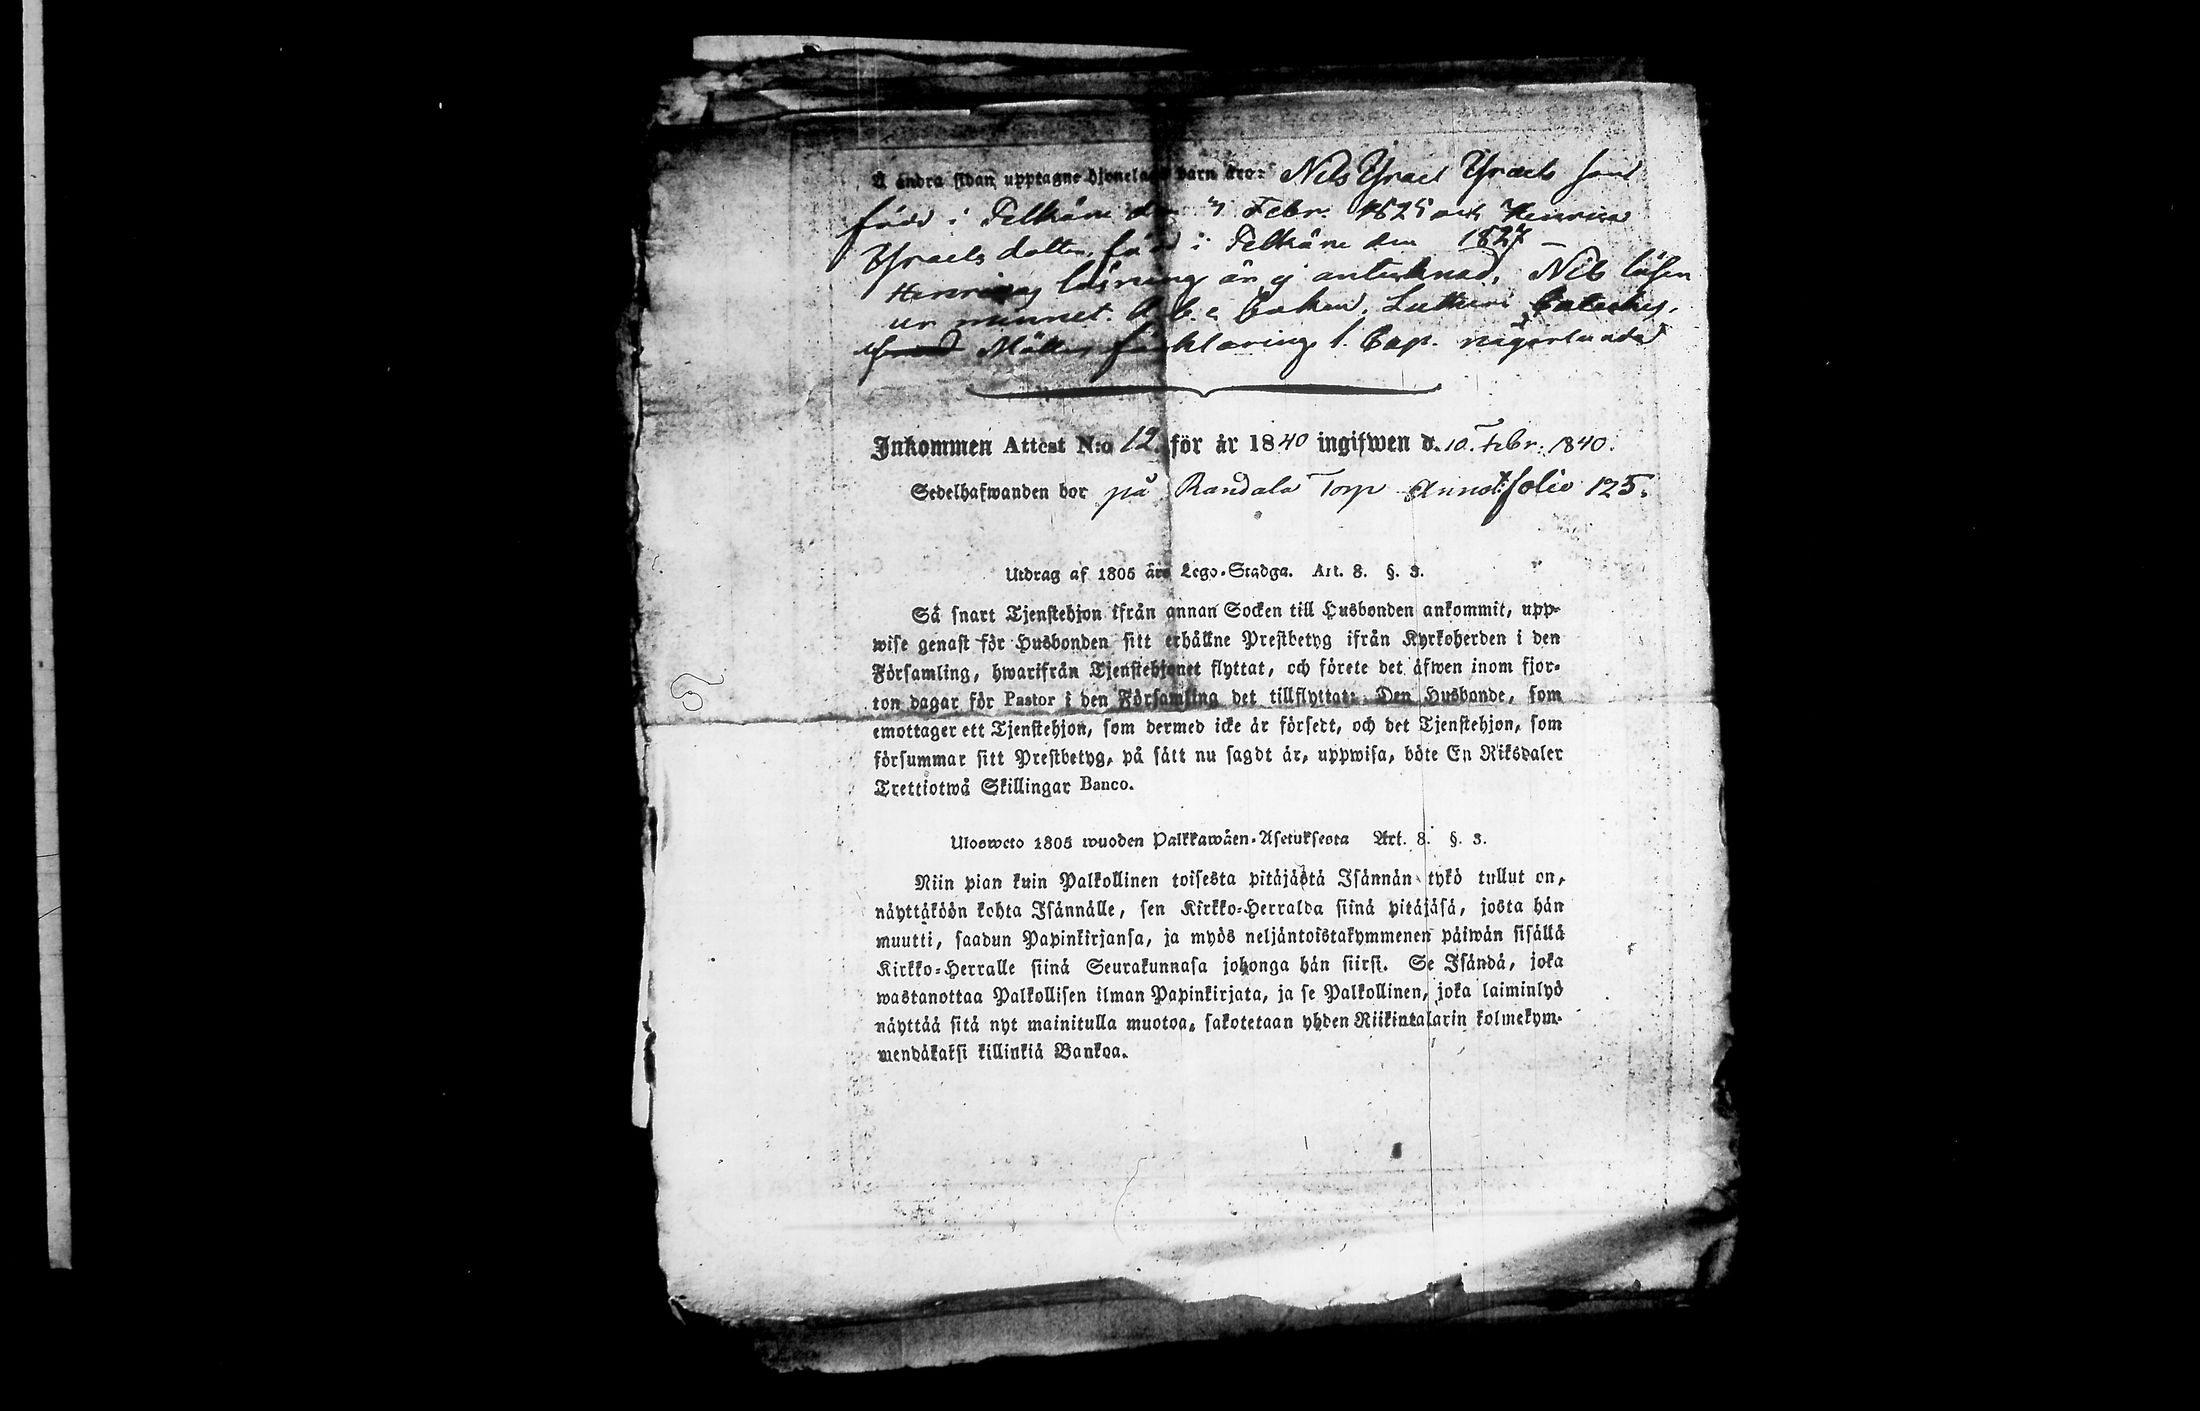 Å andra sidan upptagne hjonelags barn äro: Nils Ysrael Ysraels son
född i Pelkäne den 7 Febr. 1825 och Henrica
Ysraels dotter, född i Pelkäne den 1827 —
Henricas läsning är ej antecknad. Nils läser
ur minnet. A.b.c boken, Lutheri Cateches,
förklaring 1. Cap. någorlunda
Inkommen Attest N:o 12. för år 1840 ingifwen d. 10. Febr. 1840.
Sedelhafwanden bor på Randala Torp Annot. folio 125.
Utdrag af 1805 års Lego-Stadga. Art. 8. §. 3.
Så snart Tjenstehjon ifrån annan Socken till Husbonden ankommit, upp-
wise genast för Husbonden sitt erhållne Prestbetyg ifrån Kyrkoherden i den
Församling, hwarifrån Tjenstehjonet flyttat, och förete det äfwen inom fjor-
ton dagar för Pastor i den Församling det tillflyttat. Den Husbonde, som
emottager ett Tjenstehjon, som dermed icke är försedt, och det Tjenstehjon, som
försummar sitt Prestbetyg, på sätt nu sagdt är, uppwisa, böte En Riksdaler
Trettiotwå Skillingar Banco.
Ulosweto 1805 wuoden Palkkawäen-Asetuksesta Art. 8. §. 3.
Niin pian kuin Palkollinen toisesta pitäjästä Isännän tykö tullut on,
näyttäköön kohta Isännälle, sen Kirkko-Herralda siinä pitäjäsä, josta hän
muutti, saadun Papinkirjansa, ja myös neljäntoistakymmenen päiwän sisällä
Kirkko-Herralle siinä Seurakunnasa johonga hän siirsi. Se Isändä, joka
wastanottaa Palkollisen ilman Papinkirjata, ja se Palkollinen, joka laiminlyö
näyttää sitä nyt mainitulla muotoa, sakotetaan yhden Riikintalarin kolmekym-
mendäkaksi killinkiä Bankoa.